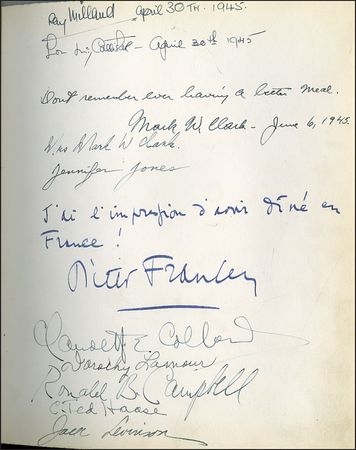 Ray Milland April 30TH. 1945.
April 30th 1945
Don't remember ever having a better meal.
Mark W. Clark - June 6, 1945.
Mrs Mark W Clark.
Jennifer Jones
J'ai l'impression d'avoir dîné en
France!
Claudette Colbert
Dorothy Lamour
Ronald B. Campbell
C. Ted Haase
Jack Levinson